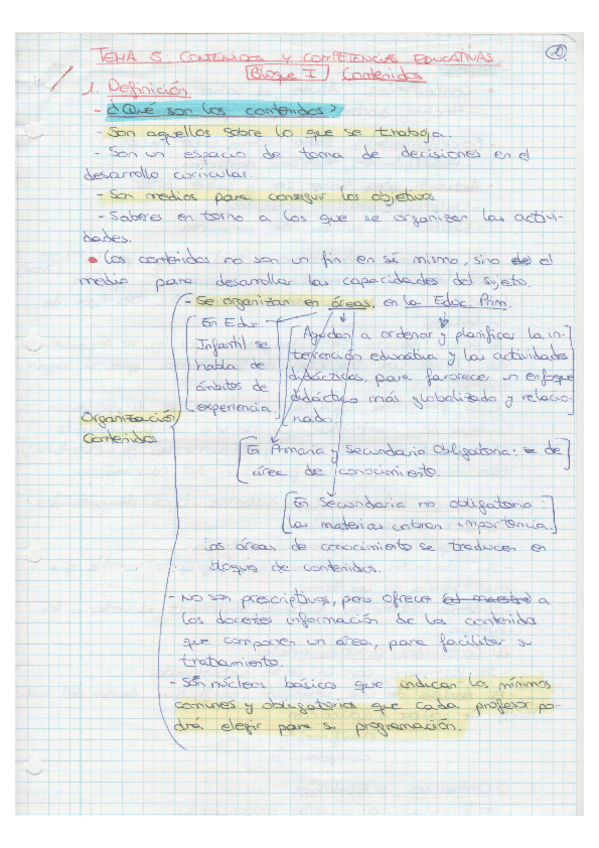 TEMA 5: CONTENIDOS Y COMPETENCIAS EDUCATIVAS.
Bloque I Contenidos
1. Definición
- ¿Qué son los contenidos?
- Son aquellos sobre lo que se trabaja.
- Son un espacio de toma de decisiones en el
desarrollo curricular.
- Son medios para conseguir los objetivos
- Saberes en torno a los que se organizan las activi-
dades.
• Los contenidos no son un fin en sí mismo, sino el
medio para desarrollar las capacidades del sujeto.
Organización
Contenidos
- Se organizan en áreas, en la Educ Prim.
En Educ
Infantil se
habla de
ámbitos de
experiencia.
Ayudan a ordenar y planificar la in-
tervención educativa y las actividades
didácticas, para favorecer un enfoque
didáctico más globalizado y relacio-
nado.
En Primaria y Secundaria Obligatoria: de
área de conocimiento.
En Secundaria no obligatoria:
las materias cobran importancia.
Las áreas de conocimiento se traducen en
bloques de contenidos.
- No son prescriptivos, pero ofrece a
los docentes información de los contenidos
que componen un área, para facilitar su
tratamiento.
- Son núcleos básico que indican los mínimos
comunes y obligatorios que cada profesor po-
drá elegir para su programación.